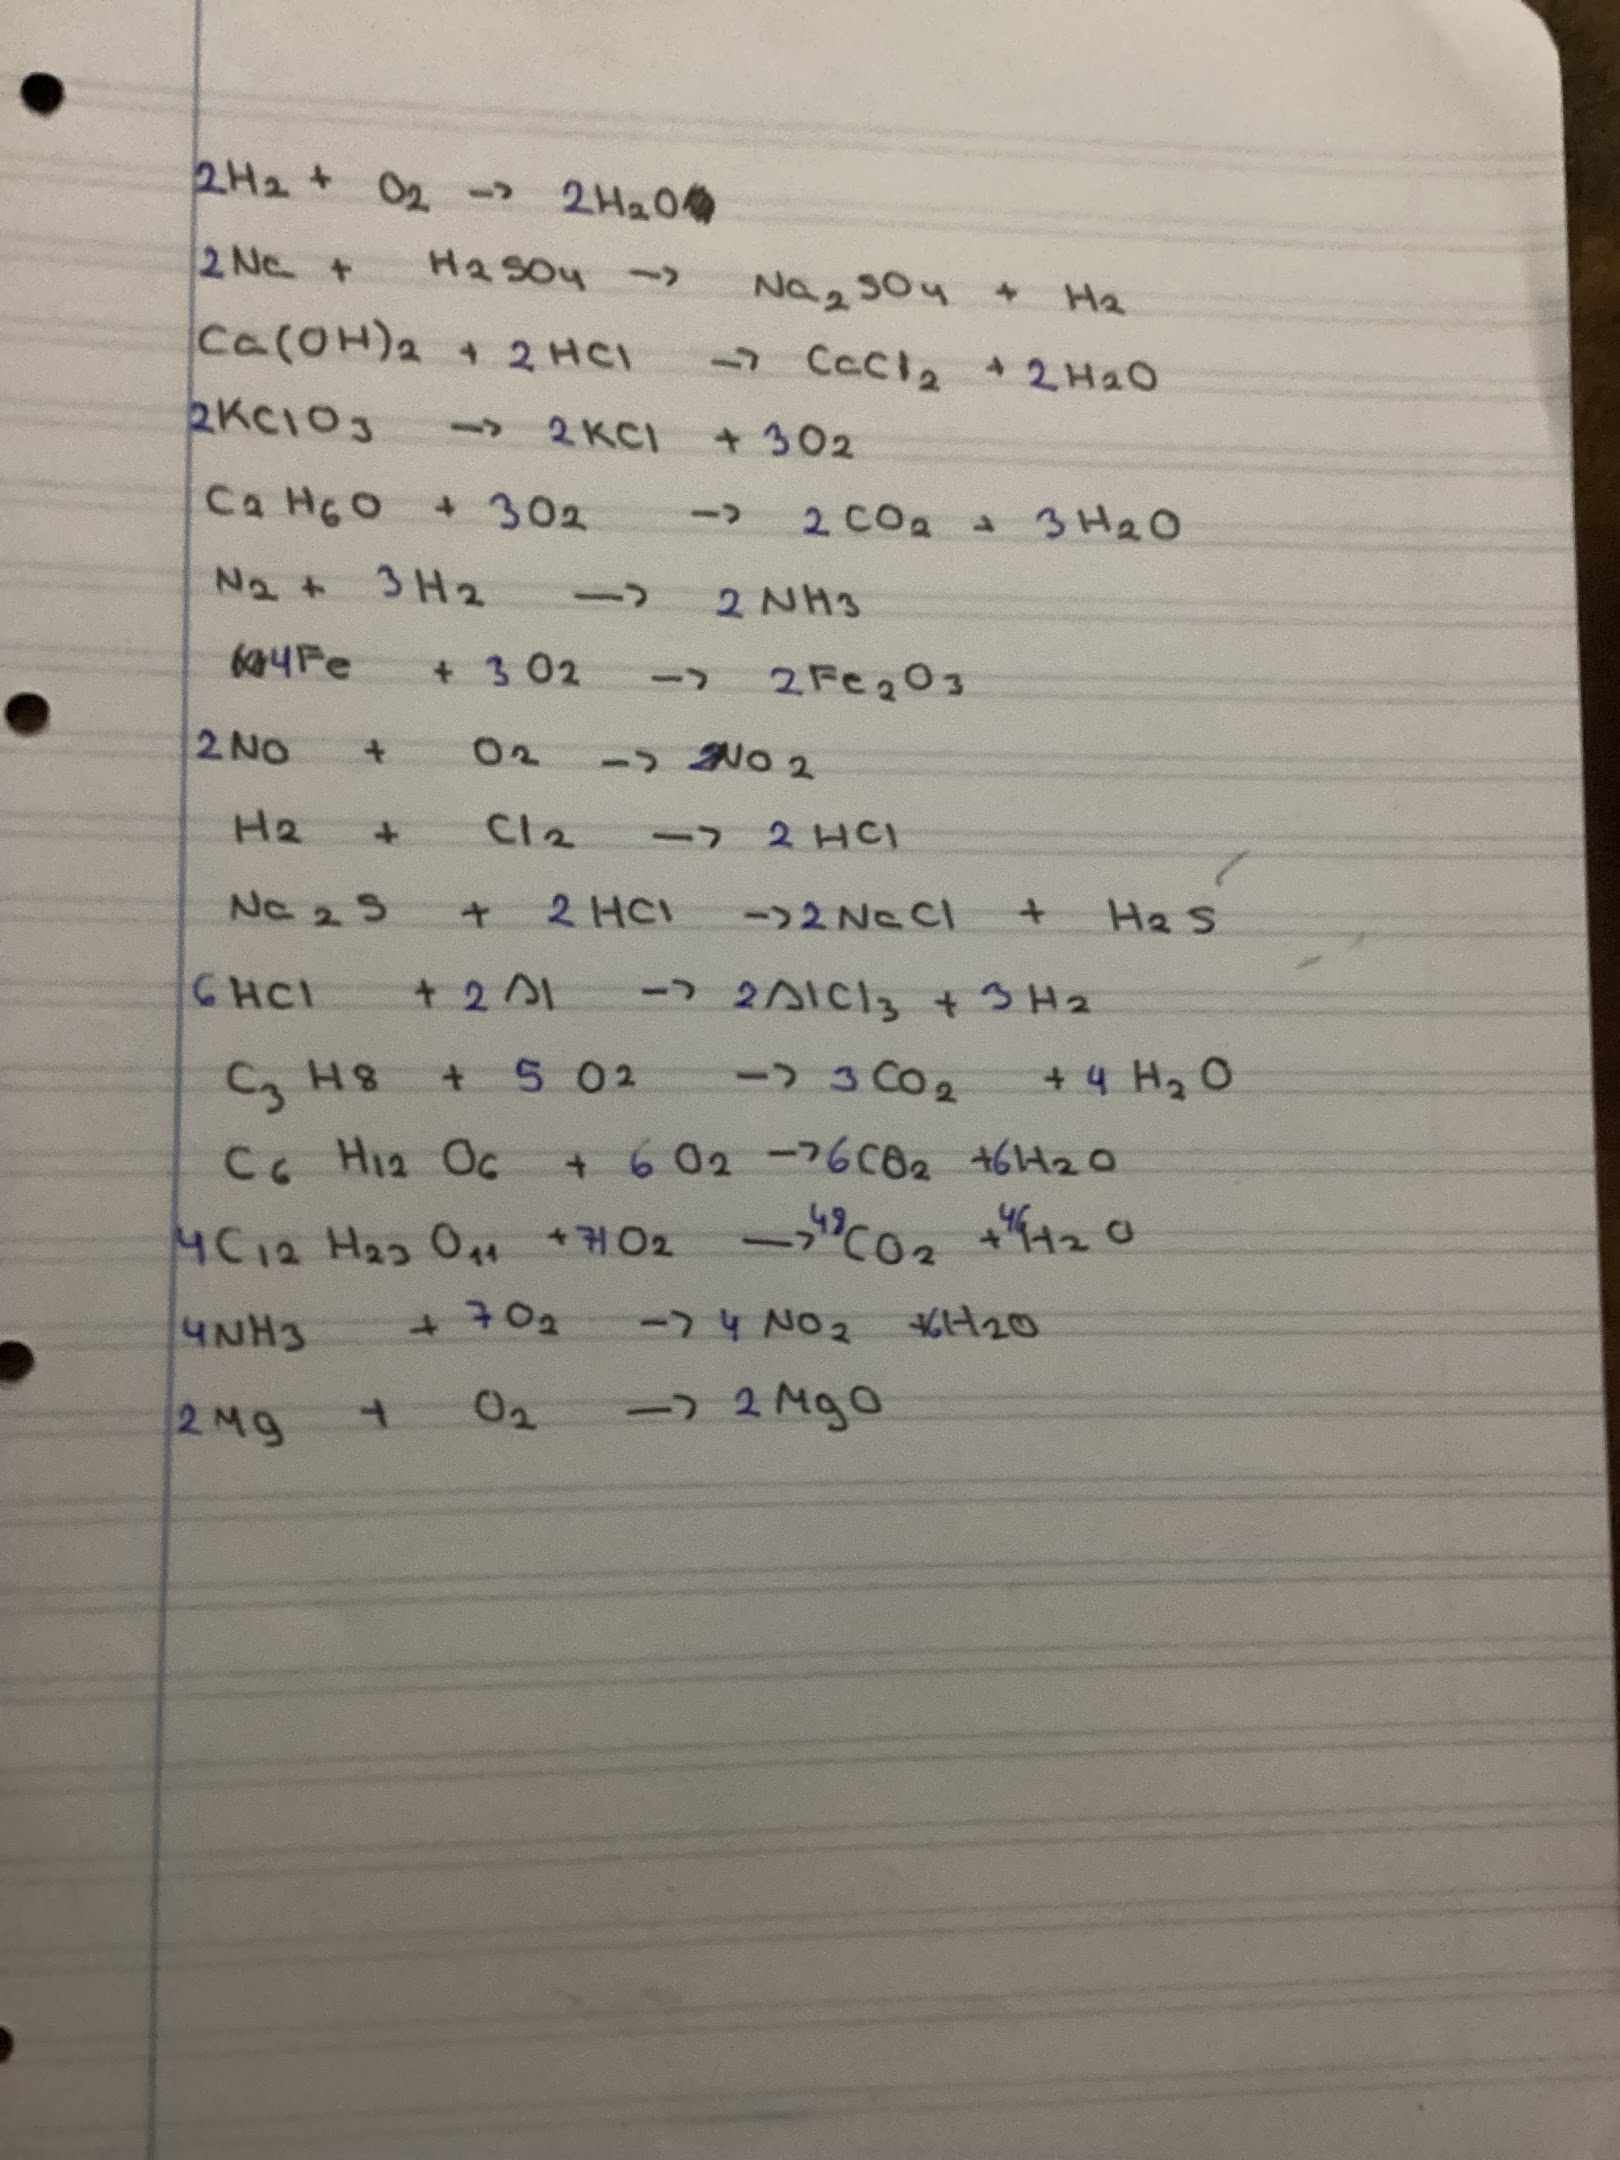 2H2 + O2 -> 2H2O
2Na + H2SO4 -> Na2SO4 + H2
Ca(OH)2 + 2HCl -> CaCl2 + 2H2O
2KClO3 -> 2KCl + 3O2
C2H6O + 3O2 -> 2CO2 + 3H2O
N2 + 3H2 -> 2NH3
4Fe + 3O2 -> 2Fe2O3
2NO + O2 -> 2NO2
H2 + Cl2 -> 2HCl
Na2S + 2HCl -> 2NaCl + H2S
6HCl + 2Al -> 2AlCl3 + 3H2
C3H8 + 5O2 -> 3CO2 + 4H2O
C6H12O6 + 6O2 -> 6CO2 + 6H2O
4C12H23O11 + 71O2 -> 48CO2 + 46H2O
4NH3 + 7O2 -> 4NO2 + 6H2O
2Mg + O2 -> 2MgO